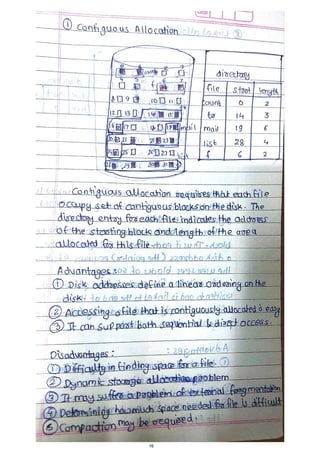 ① Contiguous Allocation
directory
file start length
count 0 2
tr 14 3
mail 19 6
list 28 4
f 6 2
count
f
8 9 10 11
12 13 14 15
mail
list
Contiguous allocation requires that each file
occupy set of contiguous blocks on the disk. The
directory entry for each file indicates the address
of the starting block and length of the area
allocated for this file
Advantages:
① Disk addresses define a linear ordering on the
disk
② Accessing a file that is contiguously allocated is easy
③ It can support both sequential & direct access.
Disadvantages:
① Difficulty in finding space for a file.
② Dynamic storage allocation problem
③ It may suffer a problem of external fragmentation
④ Determining how much space needed for file is difficult
⑤ Compaction may be required.
16